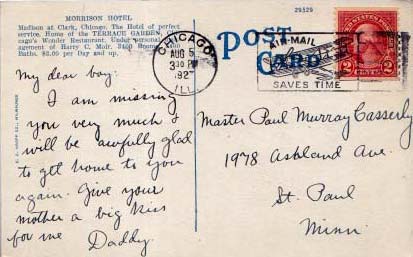 MORRISON HOTEL
Madison at Clark, Chicago. The Hotel of perfect
service. Home of the TERRACE GARDEN, Chi-
cago's Wonder Restaurant. Under personal man-
agement of Harry C. Moir. 3400 Rooms
Baths. $2.00 per Day and up.
29329
POST
CARD
CHICAGO
AUG 5
3 30 PM
192
ILL
AIR-MAIL
SAVES TIME
2 CENTS 2
My dear boy:
I am missing
you very much &
will be awfully glad
to get home to you
again. Give your
mother a big kiss
for me
Daddy.
Master Paul Murray Casserly
1978 Ashland Ave.
St. Paul
Minn.